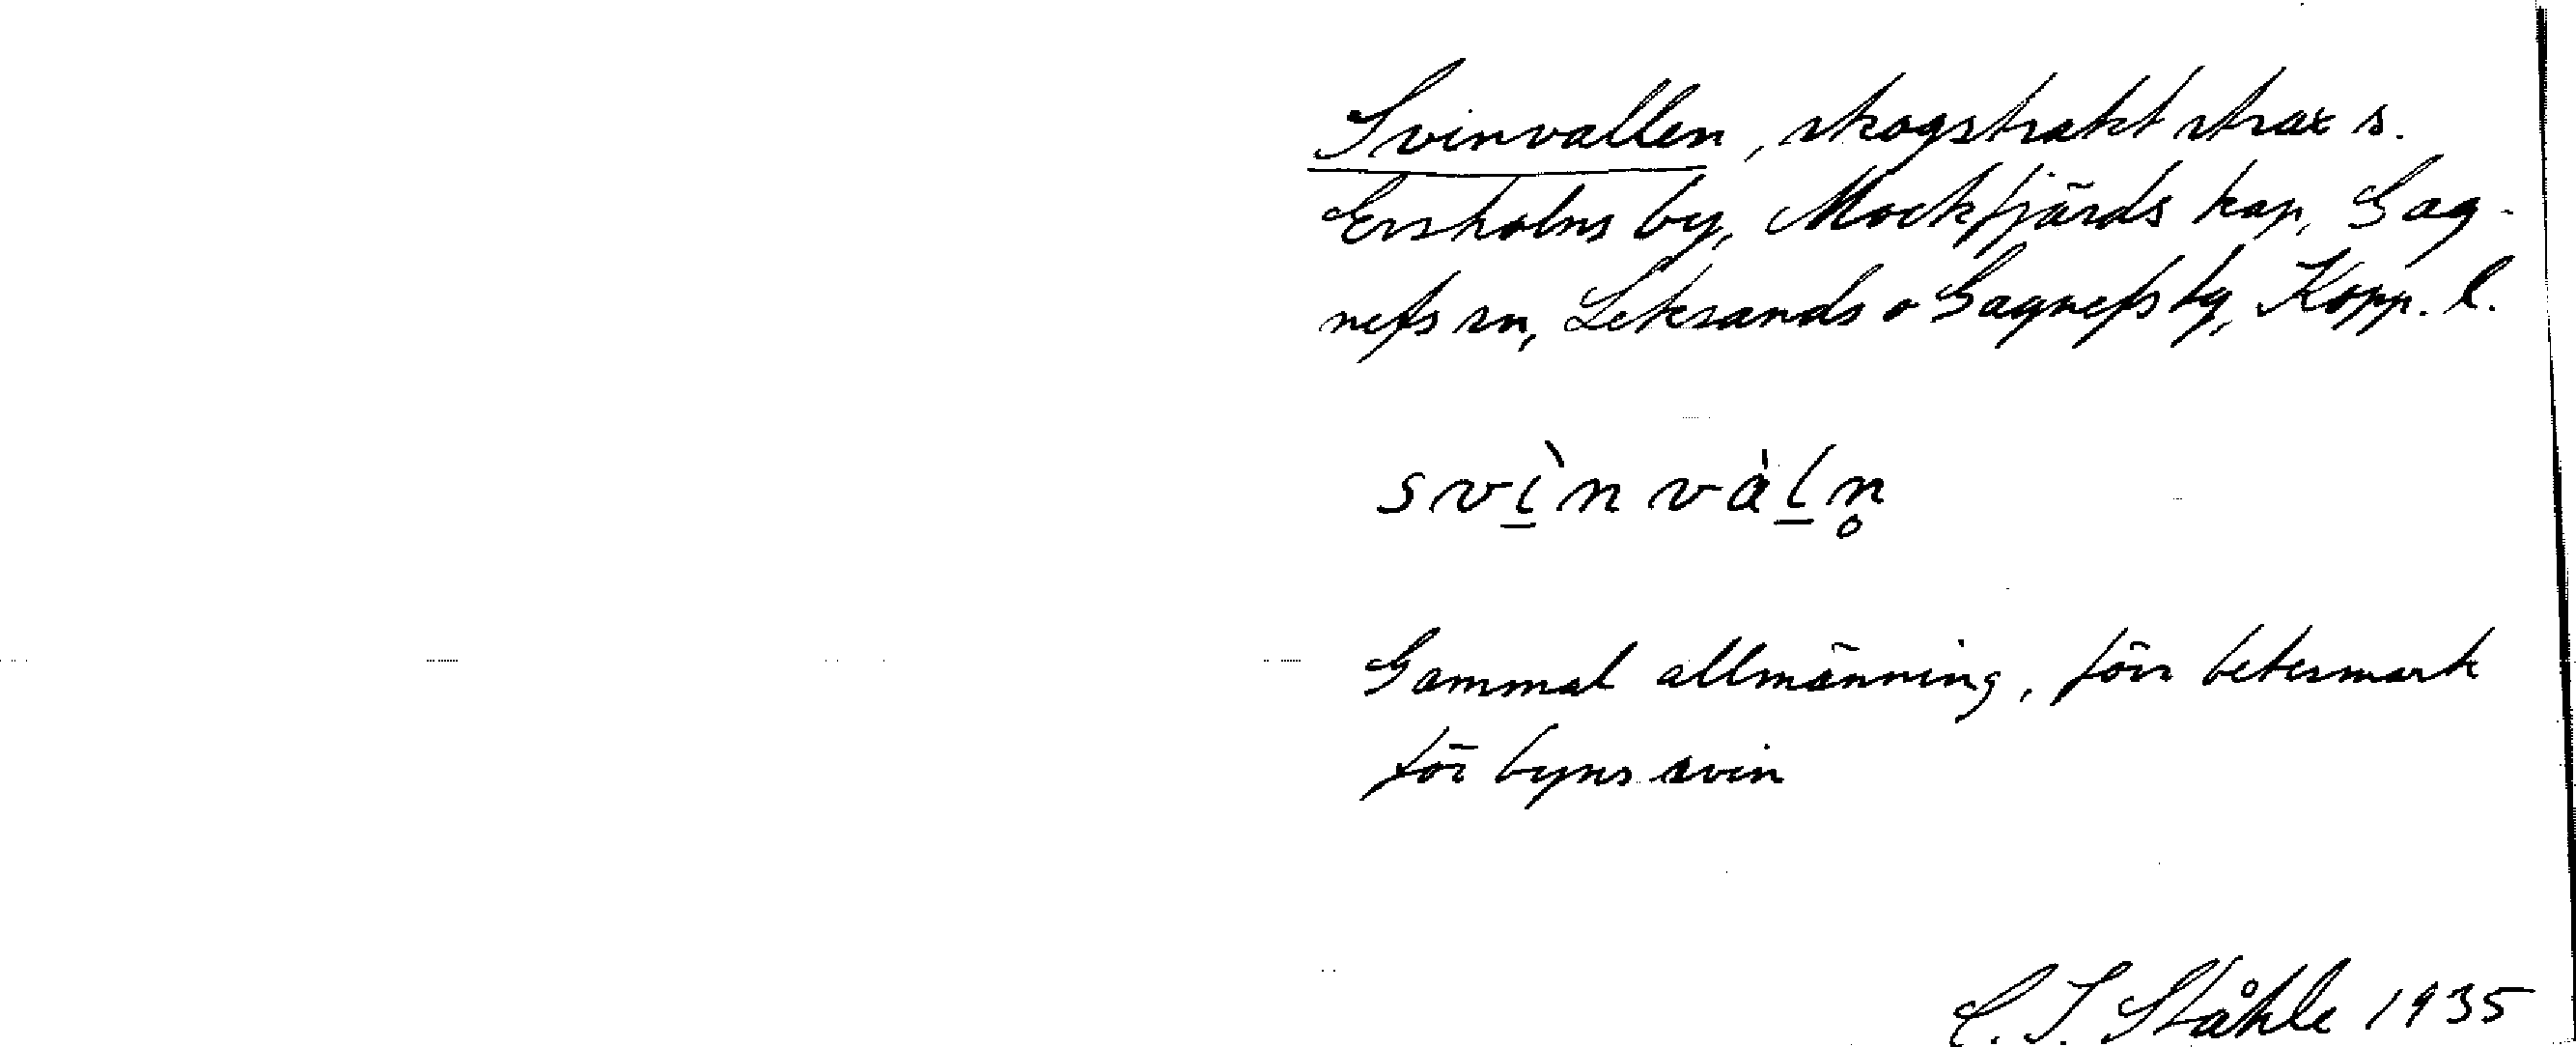 Svinvallen, skogstrakt strax s.
Ersholns by, Mockfjärds kap, Gag-
nefs sn, Leksands o Gagnefs tg, Kopp. l.
svì̲nvàl̲n̥
Gammal allmänning, förr betesmark
för byns svin
C. I. Ståhle 1935